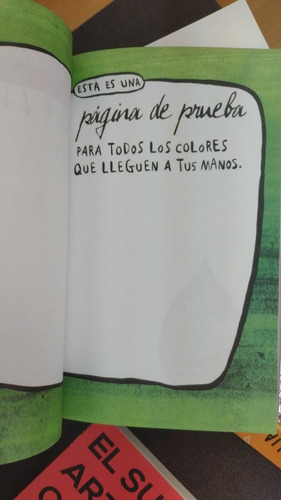 ESTA ES UNA
página de prueba
PARA TODOS LOS COLORES
QUE LLEGUEN A TUS MANOS.
EL SU
ART